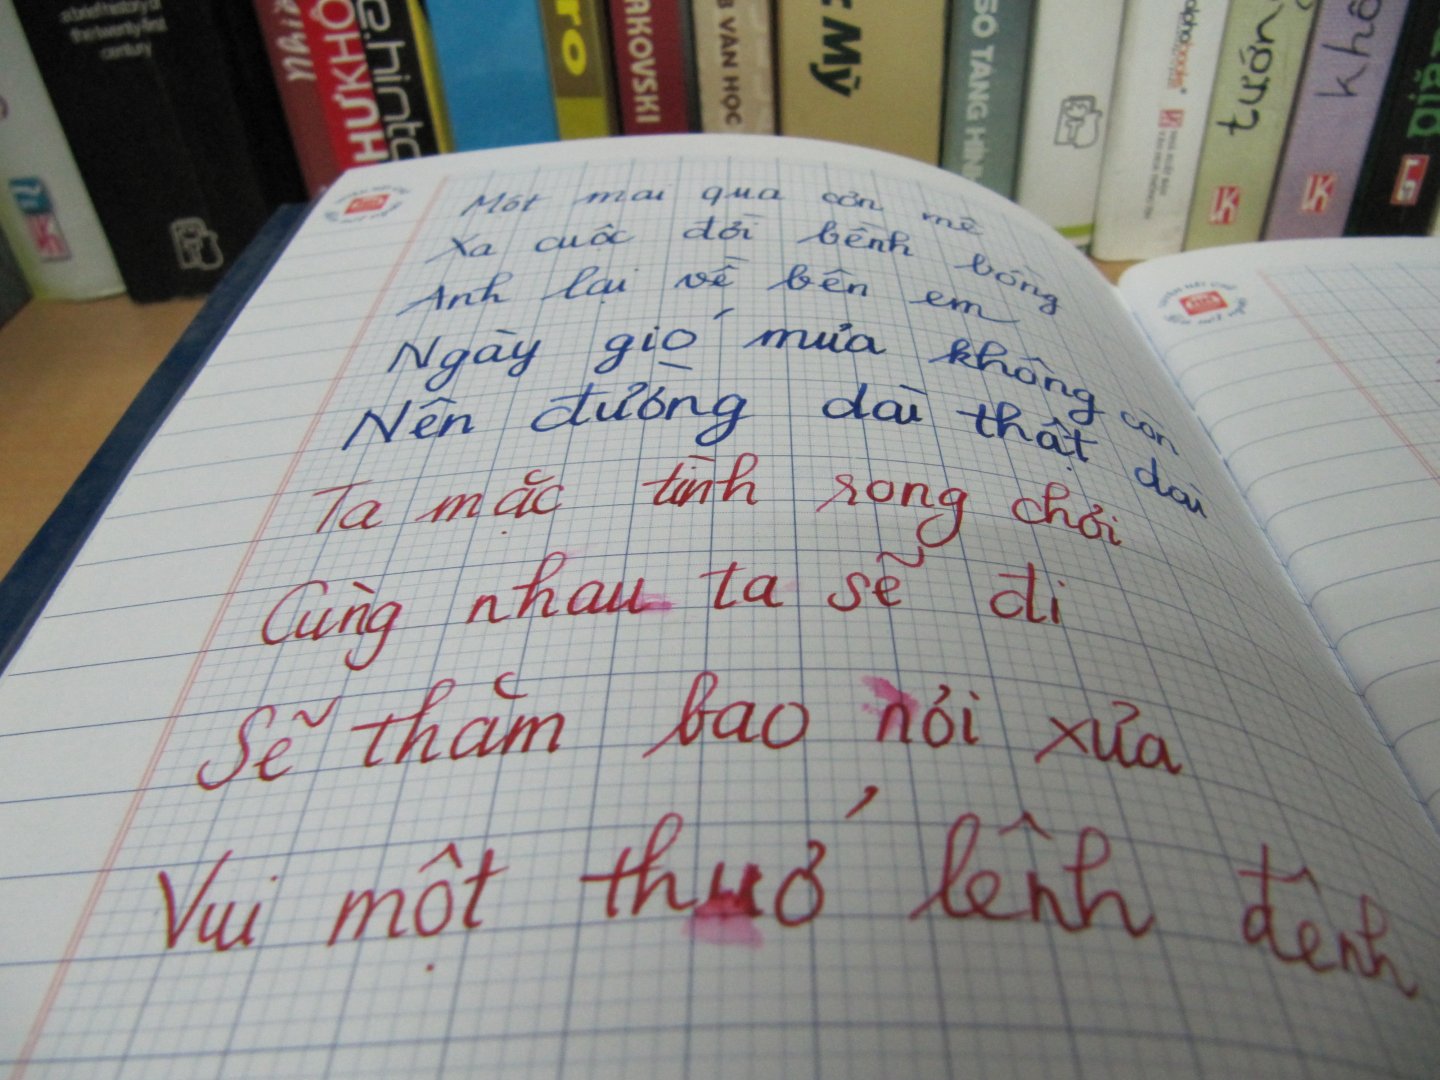 a brief history of
the twenty-first
century
HƯ KHÔ
AKOVSKI
B VĂN HỌC
MỸ
SO TÀNG HÌNH
alphabooks
tướng
khô
Một mai qua cơn mê
Xa cuộc đời bềnh bồng
Anh lại về bên em
Ngày gió mưa không còn
Nên đường dài thật dài
Ta mặc tình rong chơi
Cùng nhau ta sẽ đi
Sẽ thăm bao nơi xưa
Vui một thuở lênh đênh